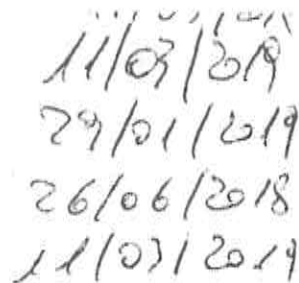 11/03/2019
29/01/2019
26/06/2018
11/03/2019